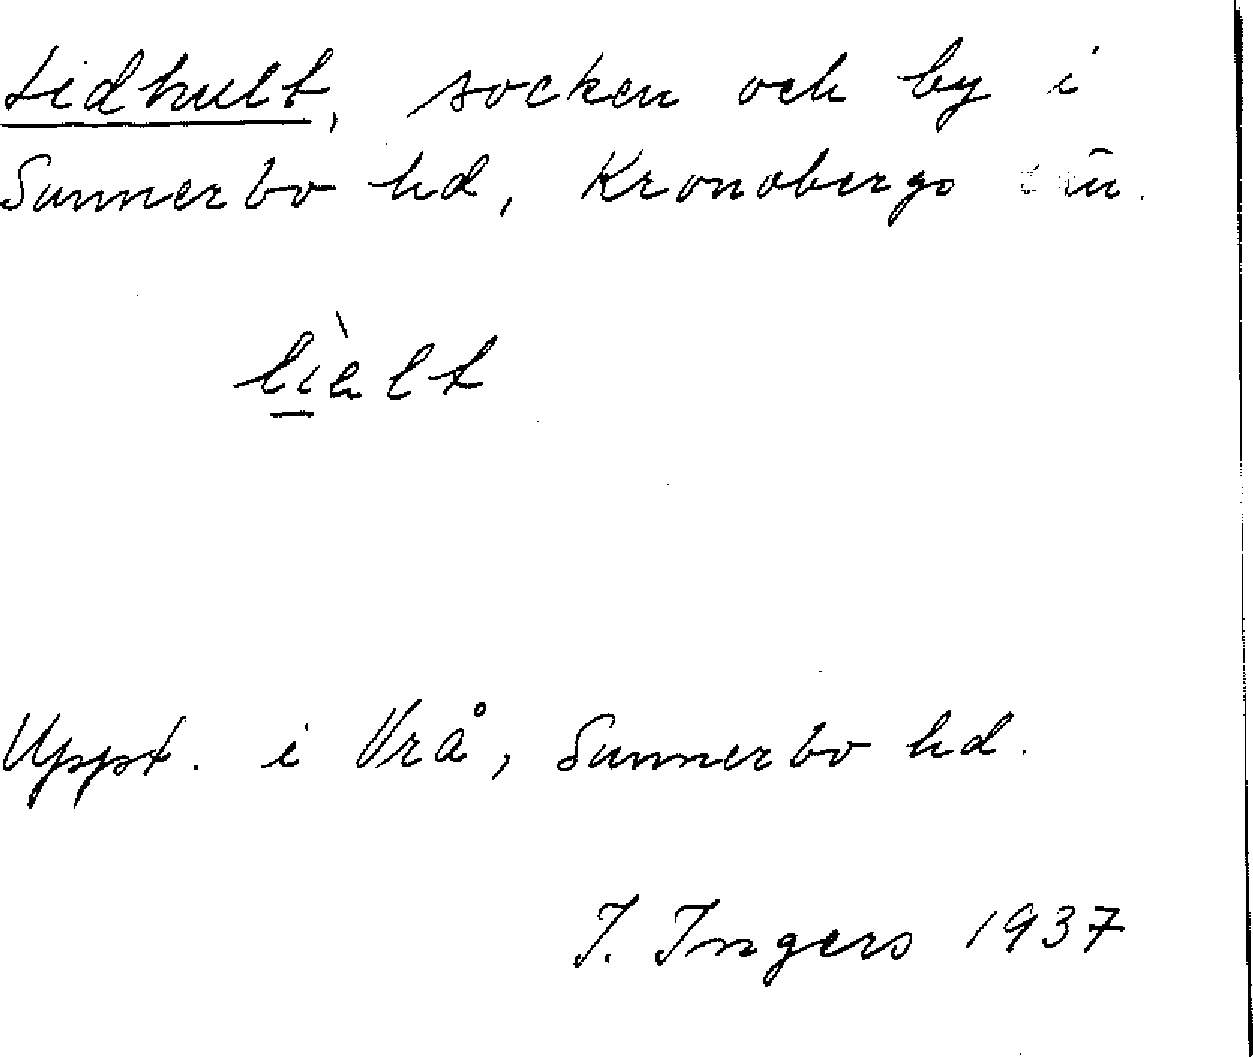 Lidhult, socken och by i
Sunnerbo hd, Kronobergs län.
lìəlt
Uppt. i Vrå, Sunnerbo hd.
I. Ingers 1937